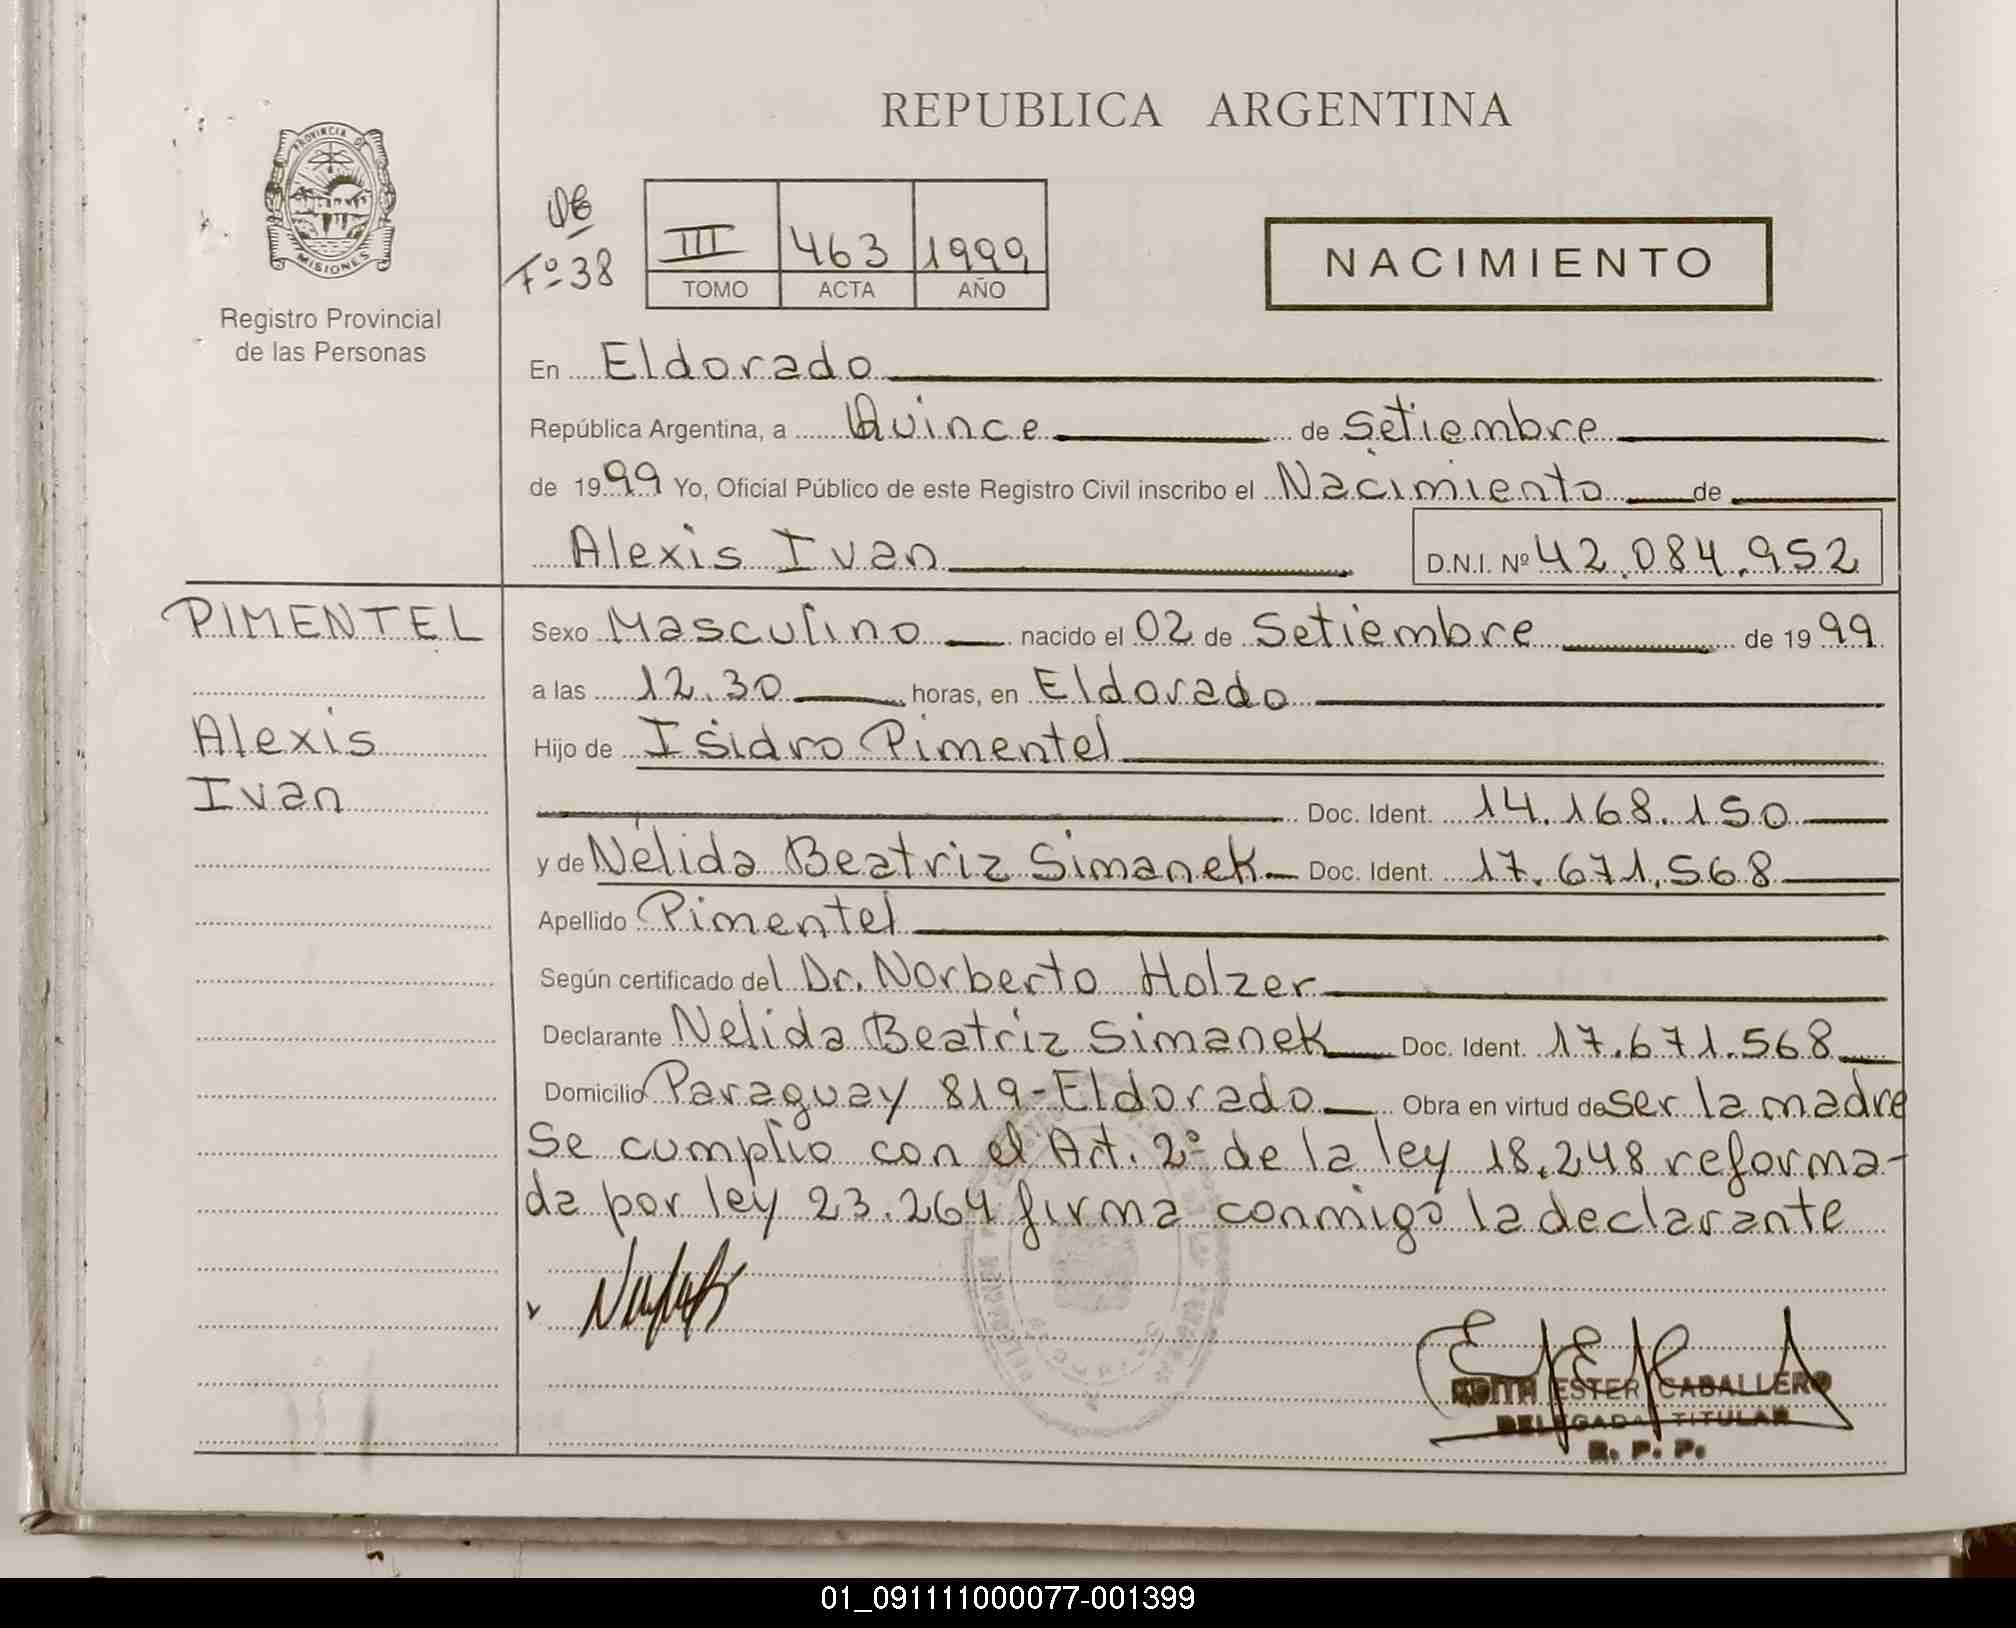 REPUBLICA ARGENTINA
PROVINCIA DE
MISIONES
Registro Provincial
de las Personas
Fº 38
III 463 1999
TOMO ACTA AÑO
NACIMIENTO
En Eldorado
República Argentina, a Quince de Setiembre
de 1999 Yo, Oficial Público de este Registro Civil inscribo el Nacimiento de
Alexis Ivan D.N.I. Nº 42.084.952
PIMENTEL
Alexis
Ivan
Sexo Masculino nacido el 02 de Setiembre de 1999
a las 12.30 horas, en Eldorado
Hijo de Isidro Pimentel
Doc. Ident. 14.168.150
y de Nélida Beatriz Simanek Doc. Ident. 17.671.568
Apellido Pimentel
Según certificado del Dr. Norberto Holzer
Declarante Nelida Beatriz Simanek Doc. Ident. 17.671.568
Domicilio Paraguay 819-Eldorado Obra en virtud de ser la madre
Se cumplio con el Art. 2º de la ley 18.248 reforma-
da por ley 23.264 firma conmigo la declarante
EDITH ESTER CABALLERO
DELEGADA TITULAR
R. P. P.
01_091111000077-001399